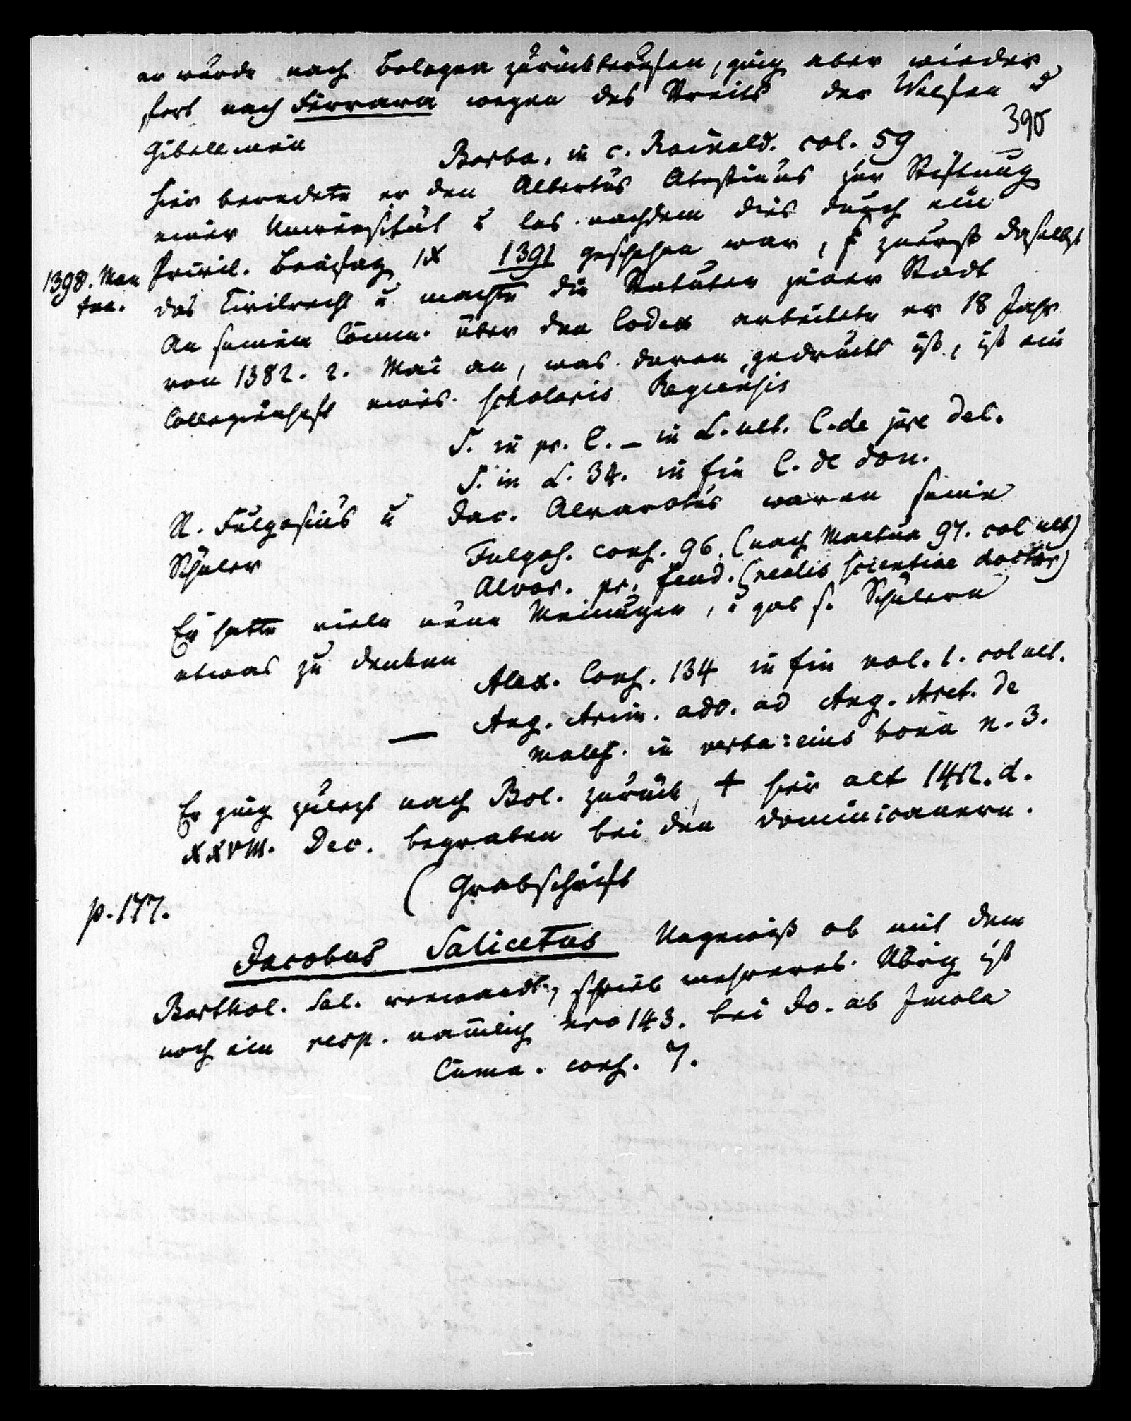 er wurde nach Bologna zurückberufen, ging aber wieder
fort nach Ferrara wegen des Streits der Welfen u
390
Gibellinen
Barba. in c. Rainald. col. 59
hier beredete er den Albertus Atestinus zur Stiftung
einer Universität u las nachdem dies durch ein
Privil. Bonifaz IX 1391 geschehen war, zuerst daselbst
1398. Man
tua.
das Civilrecht u machte die Statuten jener Stadt
An seinem Comm. über den Codex arbeitete er 18 Jahr
von 1382. 2. Mai an, was davon gedruckt ist, ist ein
Collegienheft eines scholaris Regiensis
S. in pr. C. – in L. ult. C. de jure del.
S. in L. 34. in fin C. de don.
R. Fulgosius u Jac. Alvarotus waren seine
Schüler
Fulgos. cons. 96. (nach Mantua 97. col ult)
Alvar. pr. feud. (realis scientiae doctor)
Er hatte viele neue Meinungen, u gab s. Schülern
etwas zu denken
Alex. Cons. 134 in fin vol. 1. col ult.
— Aug. Arim. add. ad Ang. Aret. de
malef. in verba: eius bona n. 3.
Er ging zuletzt nach Bol. zurück, † hier alt 1412. d.
XXVIII. Dec. begraben bei den Dominicanern.
(Grabschrift
p. 177.
Jacobus Salicetus Ungewiß ob mit dem
Barthol. Sal. verwandt, schrieb mehreres. Übrig ist
noch ein resp. nämlich nro 143. bei Jo. ab Imola
Cuma. cons. 7.